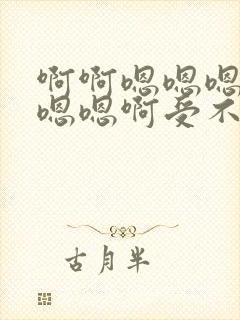 啊啊嗯嗯嗯
嗯嗯啊受不
古月半